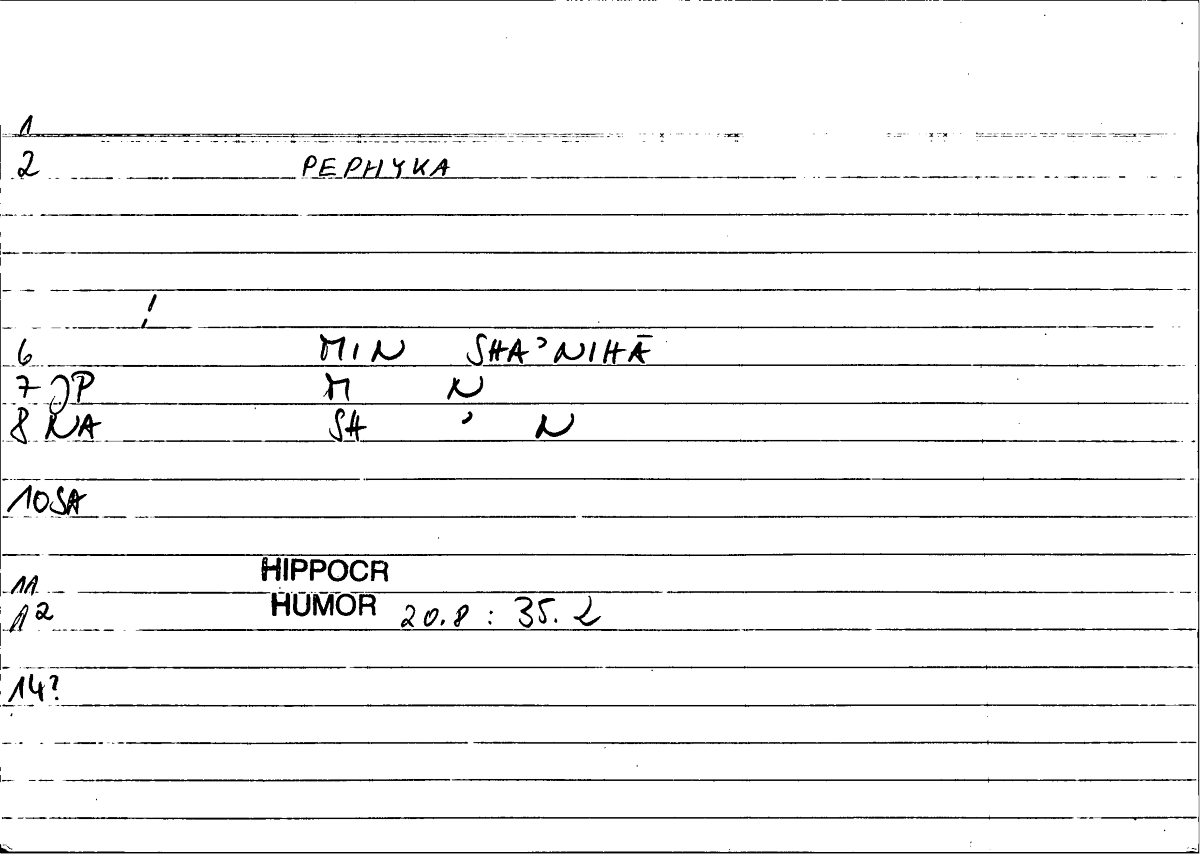 1
2 PEPHYKA
!
6 MIN SHA'NIHĀ
7 JP M N
8 NA SH ' N
10 SA
11 HIPPOCR
12 HUMOR 20.8 : 35.2
14?